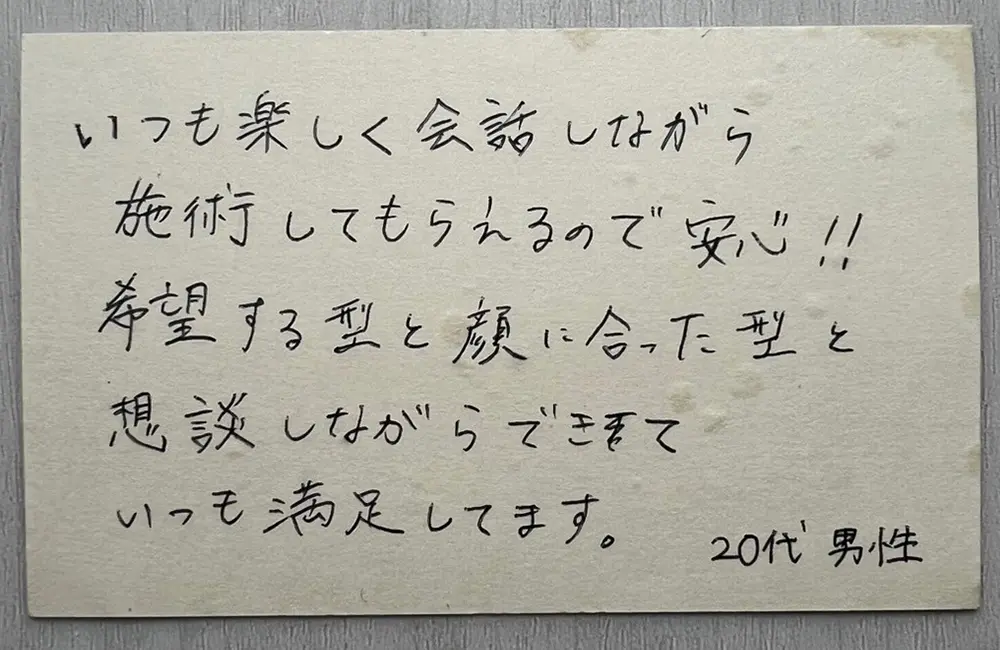 いつも楽しく会話しながら
施術してもらえるので安心!!
希望する型と顔に合った型と
想談しながらできて
いつも満足してます。
20代 男性